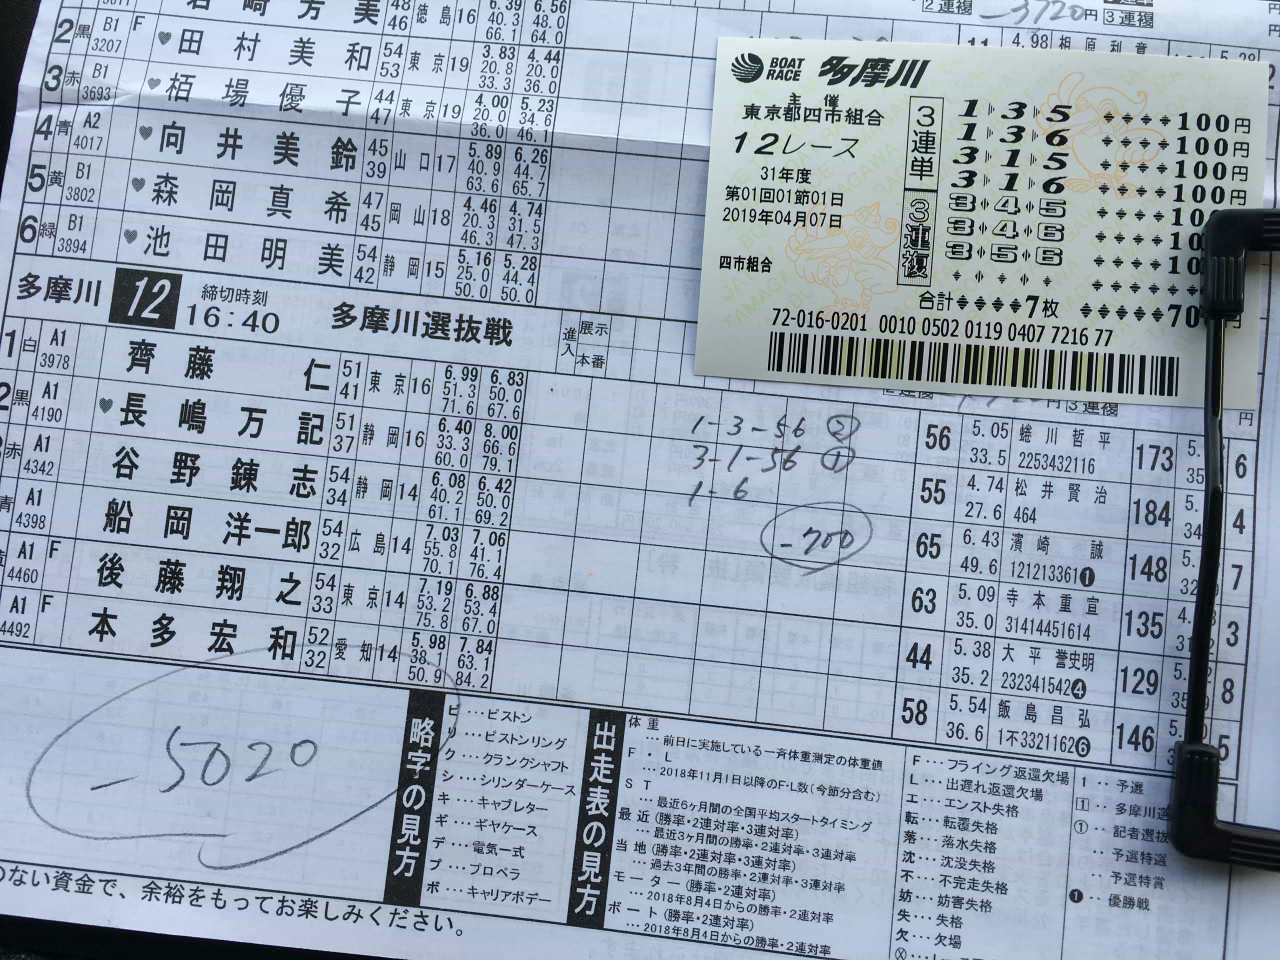 2連複 -3720円 3連複
48 46 徳島16 6.39 40.3 66.1 6.56 48.0 64.0
2 黒 B1 3207 F ♥田村美和 54 53 東京19 3.83 20.8 33.3 4.44 20.0 36.0
3 赤 B1 3693 ♥栢場優子 44 47 東京19 4.00 20.0 36.0 5.23 34.6 46.1
4 青 A2 4017 ♥向井美鈴 45 39 山口17 5.89 40.9 63.6 6.26 44.7 65.7
5 黄 B1 3802 ♥森岡真希 47 45 岡山18 4.46 20.3 46.3 4.74 31.5 47.3
6 緑 B1 3894 ♥池田明美 54 42 静岡15 5.16 25.0 50.0 5.28 44.4 50.0
多摩川 12 締切時刻 16:40 多摩川選抜戦 進入 展示 本番
1 白 A1 3978 齊藤仁 51 41 東京16 6.99 51.3 71.6 6.83 50.0 67.6
2 黒 A1 4190 ♥長嶋万記 51 37 静岡16 6.40 33.3 60.0 8.00 66.6 79.1
赤 A1 4342 谷野錬志 54 34 静岡14 6.08 40.2 61.1 6.42 50.0 69.2
青 A1 4398 船岡洋一郎 54 32 広島14 7.03 55.8 70.1 7.06 41.1 76.4
黄 A1 4460 F 後藤翔之 54 33 東京14 7.19 53.2 75.8 6.88 53.4 67.0
A1 4492 F 本多宏和 52 32 愛知14 5.98 38.1 50.9 7.84 63.1 84.2
BOAT RACE 多摩川
主催
東京都四市組合
12レース
31年度
第01回01節01日
2019年04月07日
四市組合
3連単
1 3 5 100円
1 3 6 100円
3 1 5 100円
3 1 6 100円
3連複
3 4 5 100
3 4 6 10
3 5 6 10
合計 7枚 70 円
72-016-0201 0010 0502 0119 0407 7216 77
3連複
1-3-56 ②
3-1-56 ①
1-6
-700
56 5.05 33.5 蜷川哲平 2253432116 173 6
55 4.74 27.6 松井賢治 464 184 4
65 6.43 49.6 濱崎誠 121213361❶ 148 7
63 5.09 35.0 寺本重宣 31414451614 135 3
44 5.38 35.2 大平誉史明 232341542❹ 129 8
58 5.54 36.6 飯島昌弘 1不3321162❻ 146 5
-5020
略字の見方
ピ…ピストン
リ…ピストンリング
ク…クランクシャフト
シ…シリンダーケース
キ…キャブレター
ギ…ギヤケース
デ…電気一式
プ…プロペラ
ボ…キャリアボデー
出走表の見方
体重
…前日に実施している一斉体重測定の体重値
F・L
…2018年11月1日以降のF・L数(今節分含む)
ST
…最近6ヶ月間の全国平均スタートタイミング
最近(勝率・2連対率・3連対率)
…最近3ヶ月間の勝率・2連対率・3連対率
当地(勝率・2連対率・3連対率)
…過去3年間の勝率・2連対率・3連対率
モーター(勝率・2連対率)
…2018年8月4日からの勝率・2連対率
ボート(勝率・2連対率)
…2018年8月4日からの勝率・2連対率
F…フライング返還欠場
L…出遅れ返還欠場
エ…エンスト失格
転…転覆失格
落…落水失格
沈…沈没失格
不…不完走失格
妨…妨害失格
失…失格
欠…欠場
1…予選
多摩川選
記者選抜
予選特選
予選特賞
❶…優勝戦
ない資金で、余裕をもってお楽しみください。